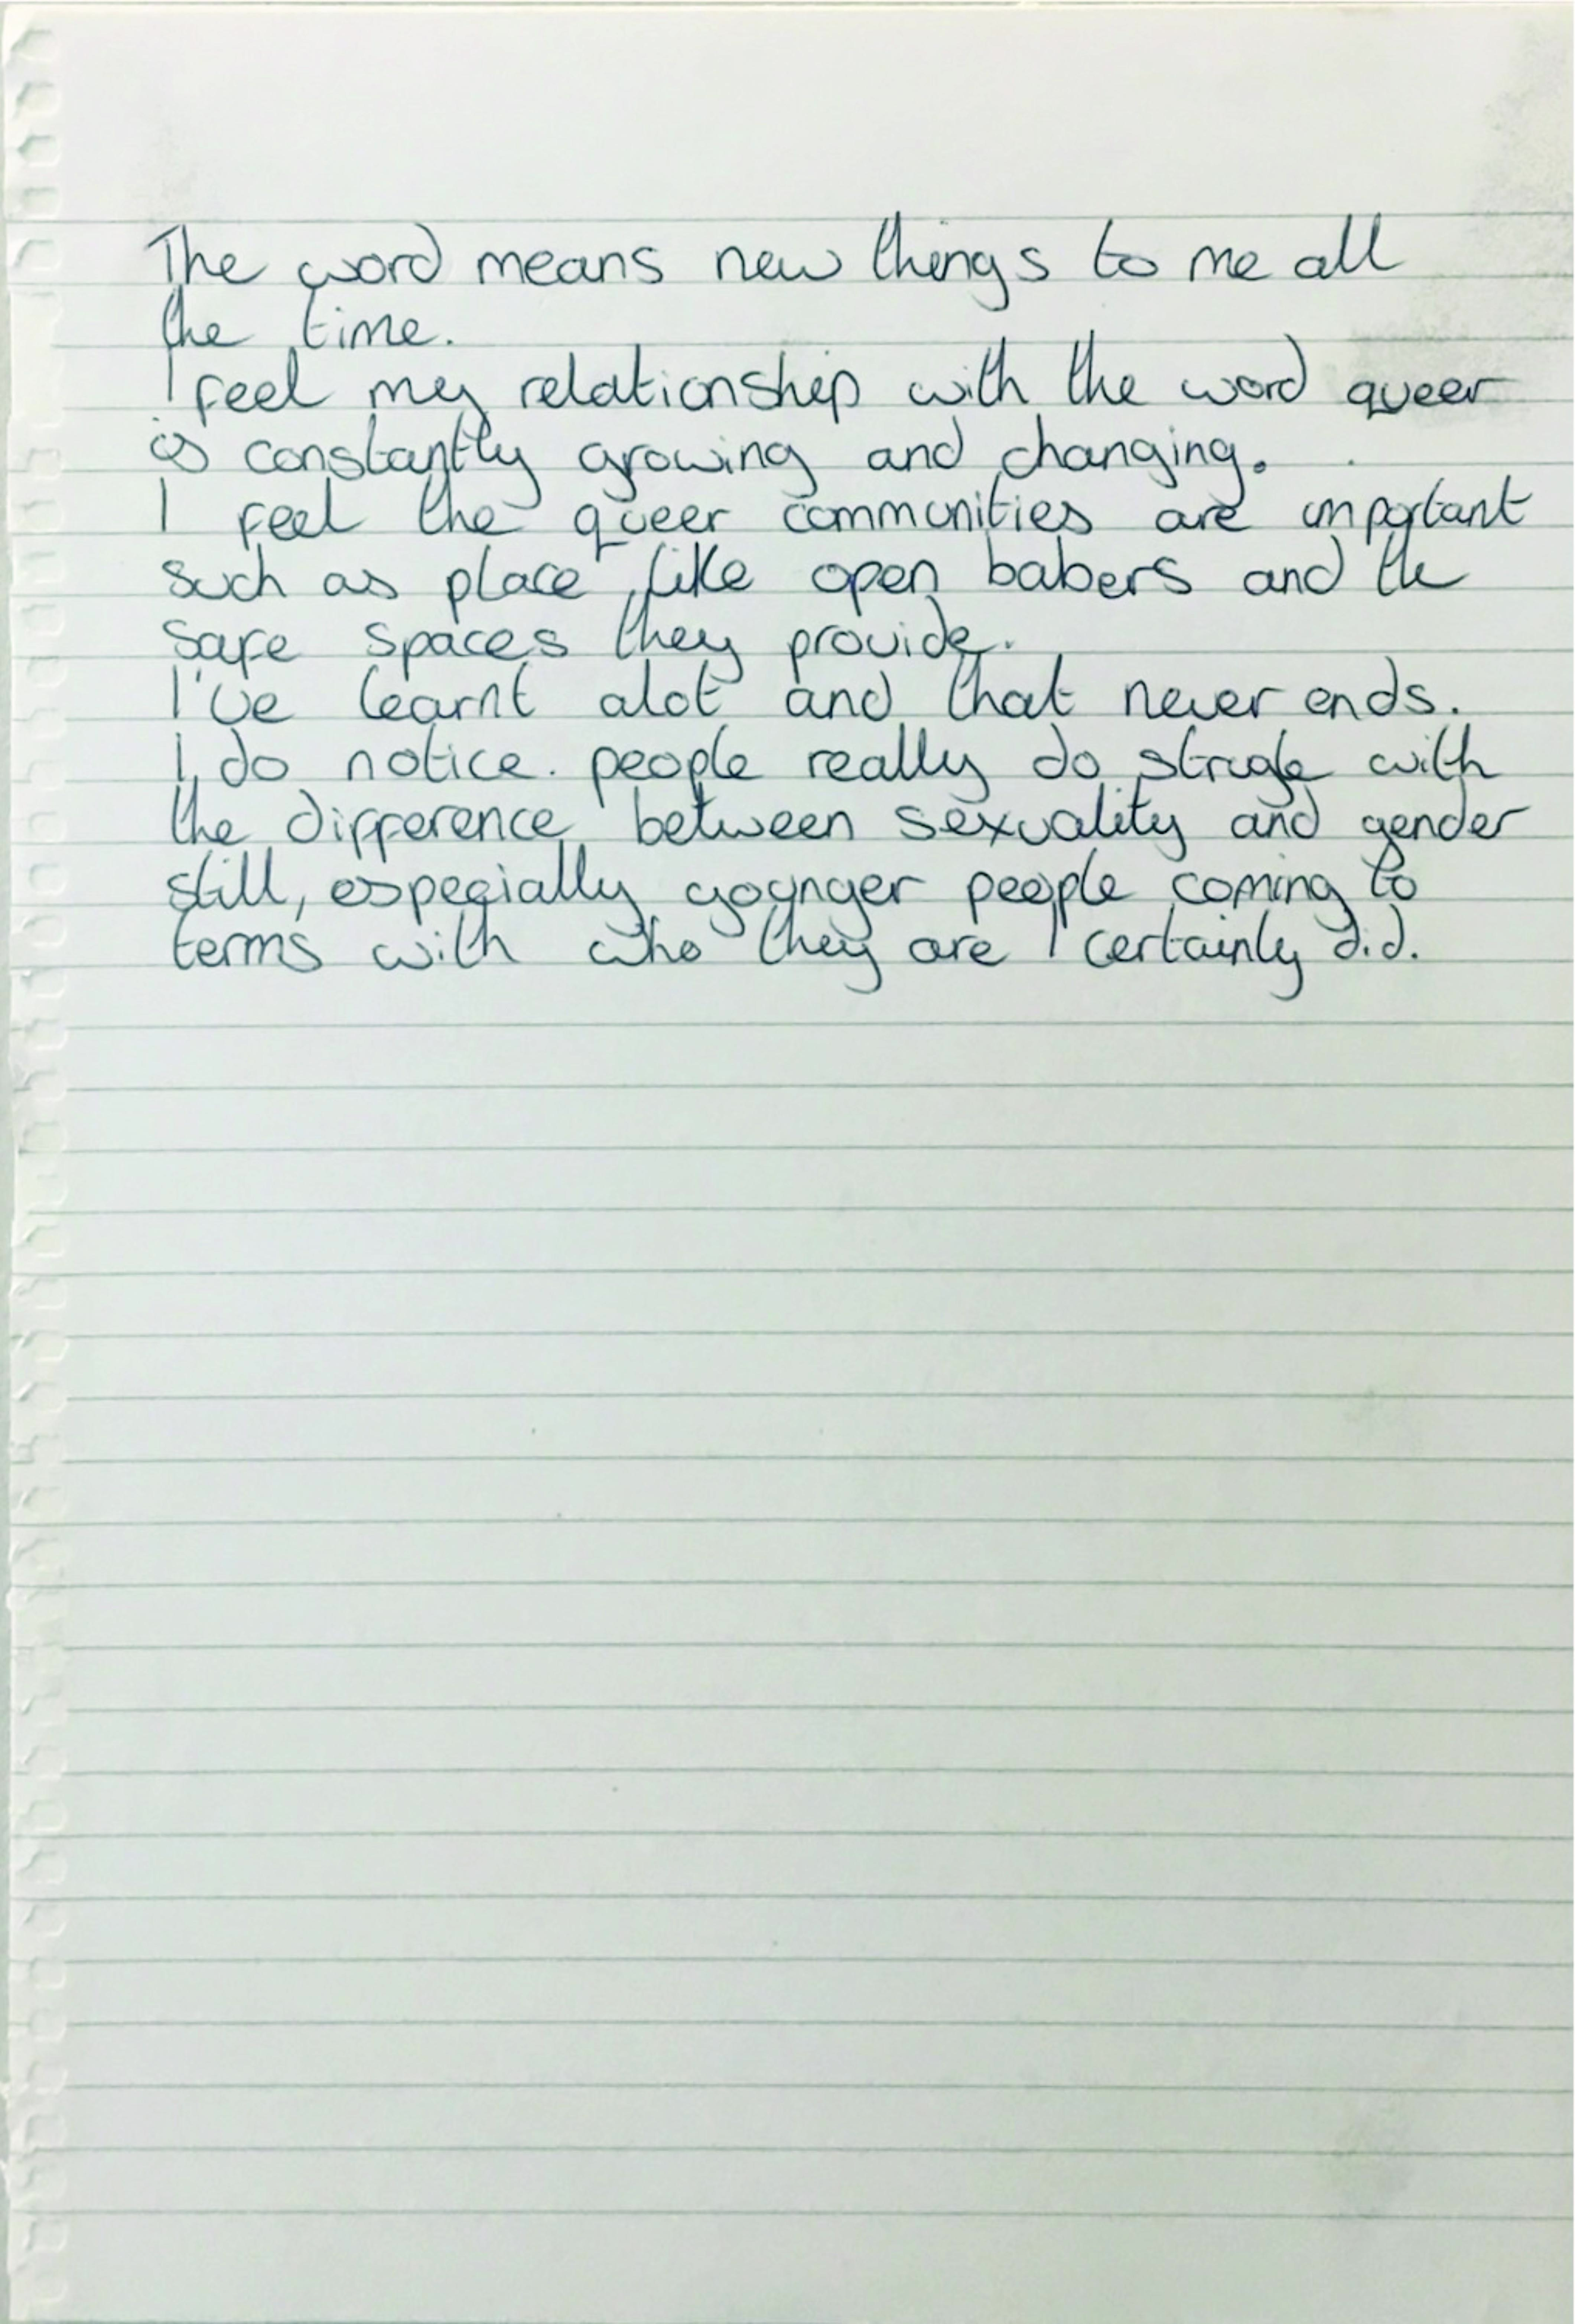 The word means new things to me all
the time.
I feel my relationship with the word queer
is constantly growing and changing.
I feel the queer communities are important
such as place like open babers and the
safe spaces they provide.
I've learnt alot and that never ends.
I do notice. people really do strugle with
the difference between sexuality and gender
still, especially younger people coming to
terms with who they are I certainly did.